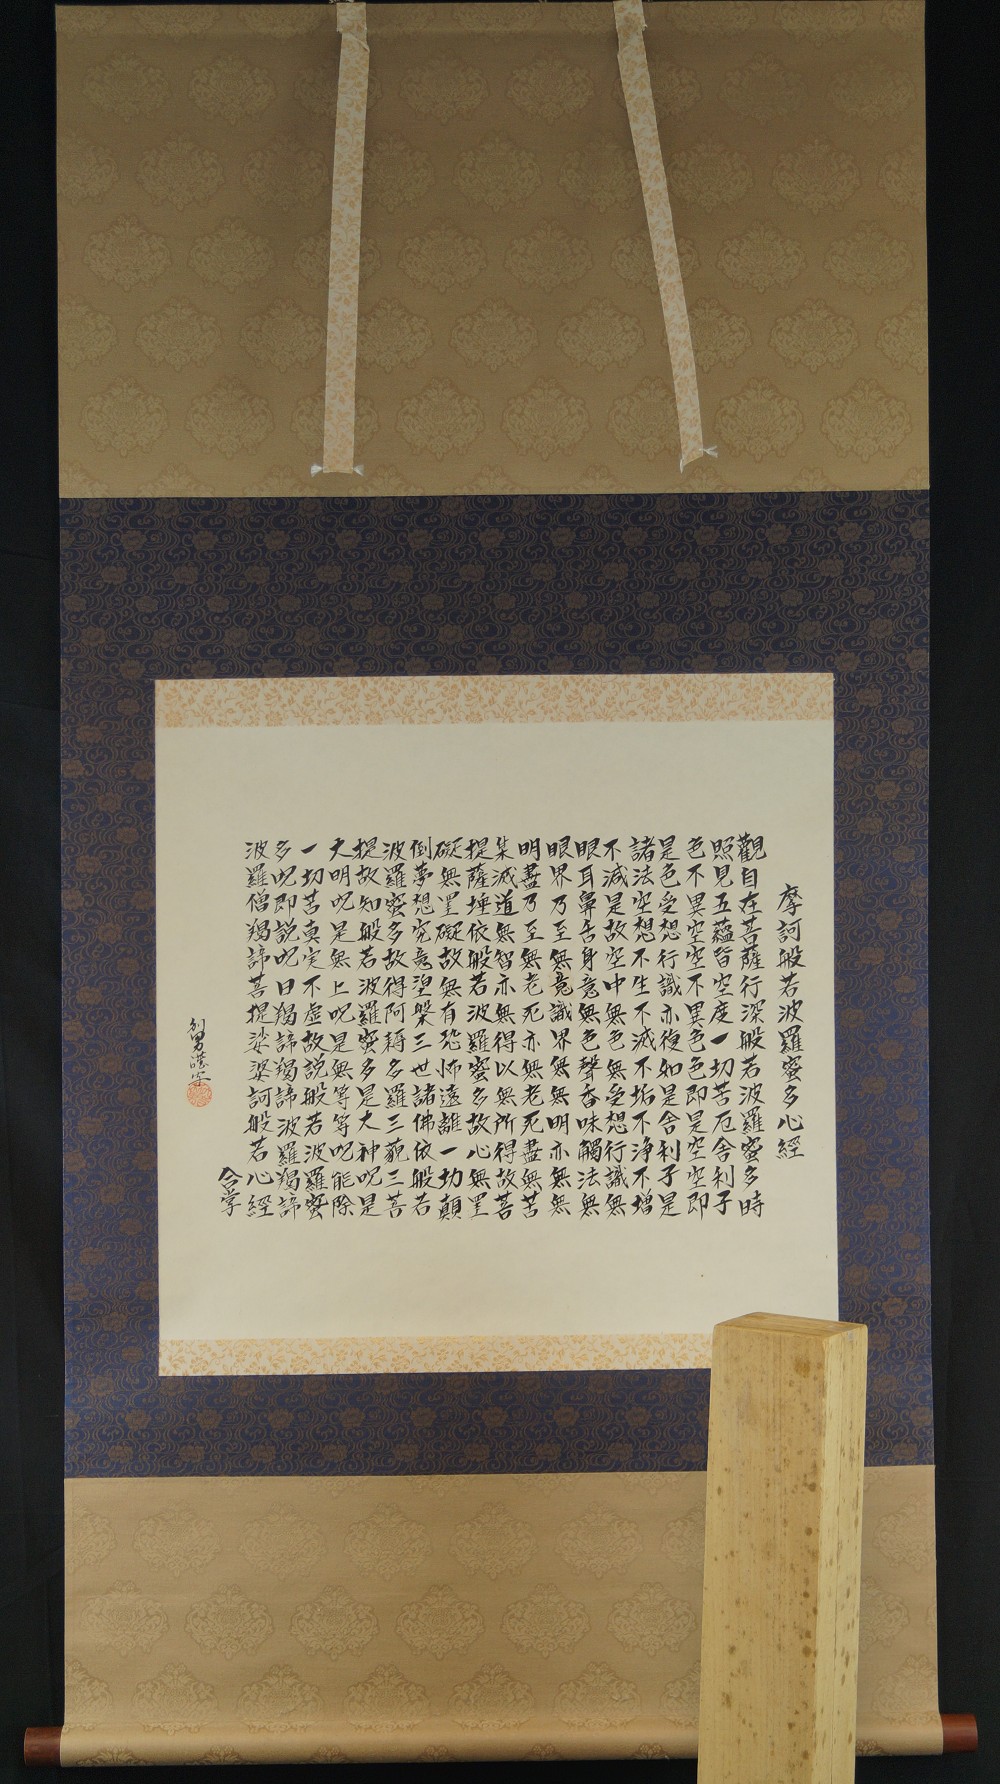 摩訶般若波羅蜜多心経
觀自在菩薩行深般若波羅蜜多時
照見五蘊皆空度一切苦厄舎利子
色不異空空不異色色即是空空即
是色受想行識亦復如是舎利子是
諸法空想不生不滅不垢不浄不増
不減是故空中無色無受想行識無
眼耳鼻舌身意無色聲香味觸法無
眼界乃至無意識界無無明亦無無
明盡乃至無老死亦無老死盡無苦
集滅道無智亦無得以無所得故菩
提薩埵依般若波羅蜜多故心無罣
礙無罣礙故無有恐怖遠離一切顛
倒夢想究竟涅槃三世諸佛依般若
波羅蜜多故得阿耨多羅三藐三菩
提故知般若波羅蜜多是大神呪是
大明呪是無上呪是無等等呪能除
一切苦真実不虚故説般若波羅蜜
多呪即説呪曰羯諦羯諦波羅羯諦
波羅僧羯諦菩提娑婆訶般若心経
合掌